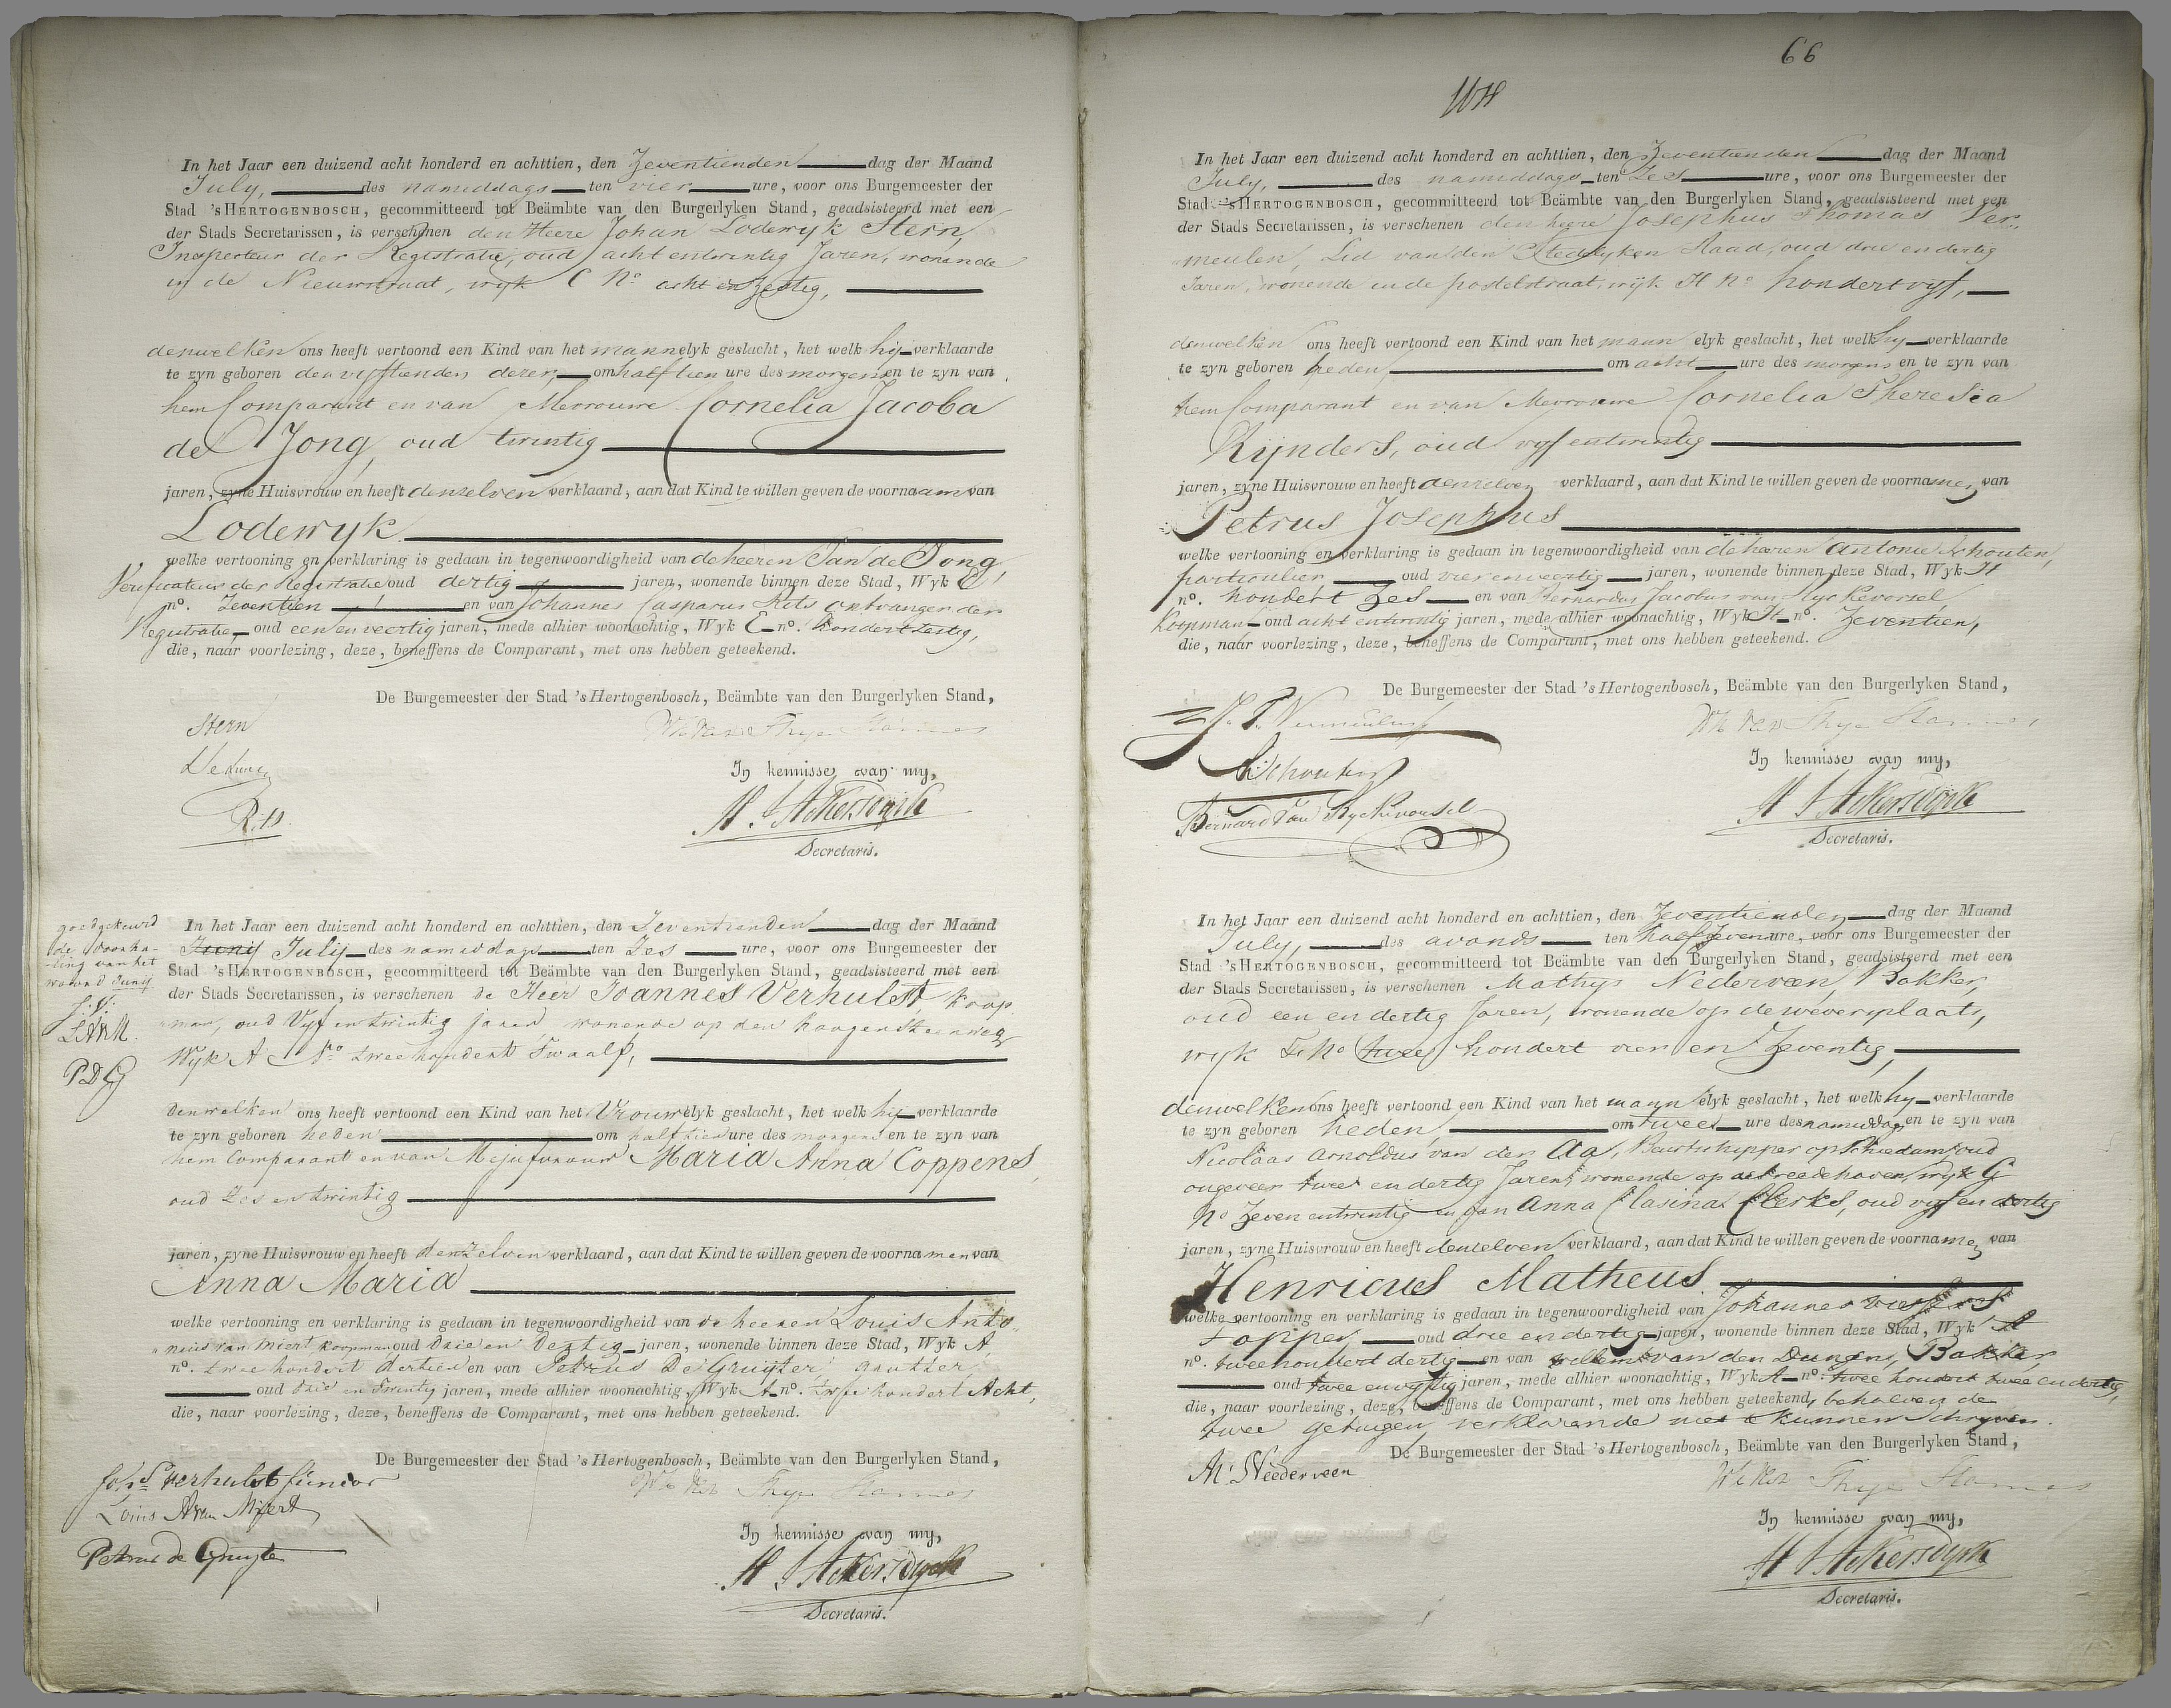 In het Jaar een duizend acht honderd en achttien, den Zeventienden dag der Maand
July, des namiddags ten vier ure, voor ons Burgemeester der
Stad 'sHERTOGENBOSCH, gecommitteerd tot Beämbte van den Burgerlyken Stand, geadsisteerd met een
der Stads Secretarissen, is verschenen den Heere Johan Lodewyk Stern,
Inspecteur der Registratie, oud acht entwintig Jaren, wonende
in de Nieuwstraat, wyk C No acht en zestig,
denwelken ons heeft vertoond een Kind van het mannelyk geslacht, het welk hy verklaarde
te zyn geboren den vyftienden dezer, om half tien ure des morgens en te zyn van
hem Comparant en van Mevrouwe Cornelia Jacoba
de Jong, oud twintig
jaren, zyne Huisvrouw en heeft denzelven verklaard, aan dat Kind te willen geven de voornaam van
Lodewyk
welke vertooning en verklaring is gedaan in tegenwoordigheid van de heeren Jan de Jong,
Verificateur der Registratie oud dertig jaren, wonende binnen deze Stad, Wyk C
no. Zeventien en van Johannes Casparus Rits ontvanger der
Registratie oud een en veertig jaren, mede alhier woonachtig, Wyk C no. hondert zestig,
die, naar voorlezing, deze, beneffens de Comparant, met ons hebben geteekend.
De Burgemeester der Stad 's Hertogenbosch, Beämbte van den Burgerlyken Stand,
Stern
De Jong
Rits
In kennisse van my,
Secretaris.
goedgekeurd
de doorha-
ling van het
woord Juny
P.D.G
In het Jaar een duizend acht honderd en achttien, den Zeventienden dag der Maand
Juny July des namiddags ten Zes ure, voor ons Burgemeester der
Stad 'sHERTOGENBOSCH, gecommitteerd tot Beämbte van den Burgerlyken Stand, geadsisteerd met een
der Stads Secretarissen, is verschenen de Heer Joannes Verhulst, koop
man, oud Vyf en twintig jaren wonende op den hoogen Steenweg
Wyk A No twee hondert Twaalf,
denwelken ons heeft vertoond een Kind van het Vrouwelyk geslacht, het welk hy verklaarde
te zyn geboren heden om half tien ure des morgens en te zyn van
hem Comparant en van Mejufvrouw Maria Anna Coppens,
oud Zes en twintig
jaren, zyne Huisvrouw en heeft denzelven verklaard, aan dat Kind te willen geven de voornamen van
Anna Maria
welke vertooning en verklaring is gedaan in tegenwoordigheid van de heeren Louis Anto-
nius van Miert, koopman oud Drie en Dertig jaren, wonende binnen deze Stad, Wyk A,
no. twee hondert dertien en van Petrus De Gruyter,
oud drie en twintig jaren, mede alhier woonachtig, Wyk A no. twee hondert Acht,
die, naar voorlezing, deze, beneffens de Comparant, met ons hebben geteekend.
De Burgemeester der Stad 's Hertogenbosch, Beämbte van den Burgerlyken Stand,
Joh.s Verhulst Junior
Louis A van Miert
Petrus de Gruyter
In kennisse van my,
Secretaris.
66
In het Jaar een duizend acht honderd en achttien, den Zeventienden dag der Maand
July, des namiddags ten Zes ure, voor ons Burgemeester der
Stad 'sHERTOGENBOSCH, gecommitteerd tot Beämbte van den Burgerlyken Stand, geadsisteerd met een
der Stads Secretarissen, is verschenen den heere Josephus Thomas Ver-
meulen, Lid van den Stedelyken Raad, oud drie en dertig
Jaren, wonende in de postelstraat, wyk H no hondert vyf,
denwelken ons heeft vertoond een Kind van het mannelyk geslacht, het welk hy verklaarde
te zyn geboren heden, om acht ure des morgens en te zyn van
hem Comparant en van Mevrouwe Cornelia Theresia
Rijnders, oud vyf entwintig
jaren, zyne Huisvrouw en heeft denzelven verklaard, aan dat Kind te willen geven de voornamen van
Petrus Josephus
welke vertooning en verklaring is gedaan in tegenwoordigheid van de heeren Antonie Schouten,
particulier oud vier en veertig jaren, wonende binnen deze Stad, Wyk H
no. hondert zes en van Bernardus Jacobus van Ryckevorsel
Koopman oud acht entwintig jaren, mede alhier woonachtig, Wyk H no. Zeventien,
die, naar voorlezing, deze, beneffens de Comparant, met ons hebben geteekend.
De Burgemeester der Stad 's Hertogenbosch, Beämbte van den Burgerlyken Stand,
J. T. Vermeulen
A. Schouten
Bernard van Ryckevorsel
In kennisse van my,
Secretaris.
In het Jaar een duizend acht honderd en achttien, den Zeventienden dag der Maand
July, des avonds ten half zeven ure, voor ons Burgemeester der
Stad 'sHERTOGENBOSCH, gecommitteerd tot Beämbte van den Burgerlyken Stand, geadsisteerd met een
der Stads Secretarissen, is verschenen Mathys Nederveen, Bakker,
oud een en dertig Jaren, wonende op de weversplaats,
wyk F. no twee hondert vier en Zeventig,
denwelken ons heeft vertoond een Kind van het mannelyk geslacht, het welk hy verklaarde
te zyn geboren heden, om twee ure des namiddag en te zyn van
Nicolaas Arnoldus van der Aa, Beurtschipper op Schiedam, oud
ongeveer twee en dertig Jaren, wonende op de breedehaven, wyk G
no Zeven entwintig en van Anna Clasina Clerks, oud vyf en dertig
jaren, zyne Huisvrouw en heeft denzelven verklaard, aan dat Kind te willen geven de voornamen van
Henricus Matheus
welke vertooning en verklaring is gedaan in tegenwoordigheid van Johannes
Tapper, oud drie en dertig jaren, wonende binnen deze Stad, Wyk A
no. twee hondert dertig en van willem van den Dungen, Bakker,
oud twee en vyftig jaren, mede alhier woonachtig, Wyk A no. twee hondert twee en dertig
die, naar voorlezing, deze, beneffens de Comparant, met ons hebben geteekend, behalven de
twee getuigen, verklarende niet te kunnen Schryven.
De Burgemeester der Stad 's Hertogenbosch, Beämbte van den Burgerlyken Stand,
M. Neederveen
In kennisse van my,
Secretaris.